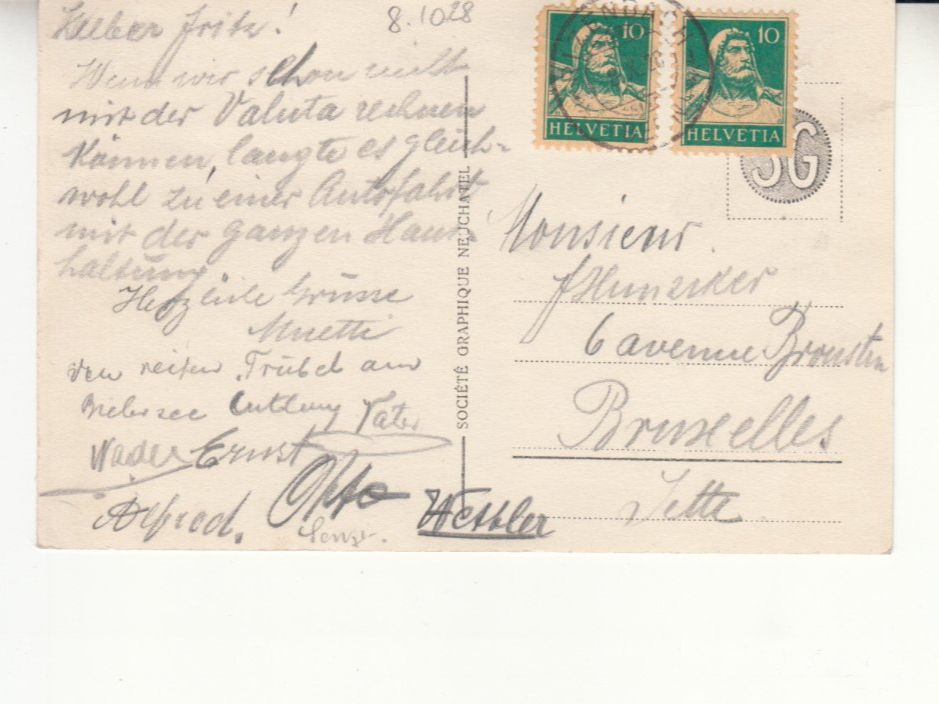 8.1028
Lieber Fritz!
Wenn wir schon nicht
mit der Valuta rechnen
können, langte es gleich-
wohl zu einer Autofahrt
mit der ganzen Haus-
haltung.
Herzliche Grüsse
Muetti
den reifen Trübel am
Bielersee entlang Vater
Ernst
Alfred. Otto
10
HELVETIA
10
HELVETIA
SG
SOCIÉTÉ GRAPHIQUE NEUCHATEL
Monsieur
F Hunziker
6 avenue
Bruxelles
Jette